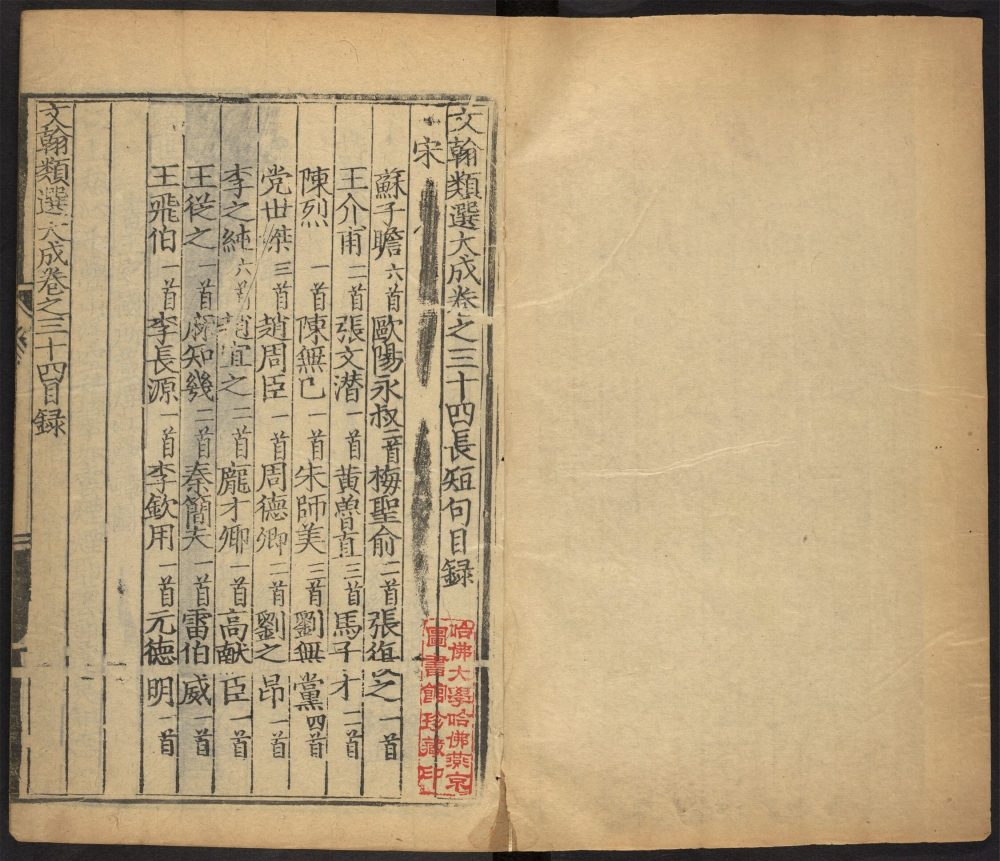 文翰類選大成卷之三十四長短句目録
宋
蘇子瞻六首 歐陽永叔二首 梅聖俞二首 張復之一首
王介甫二首 張文潜一首 黄曾直三首 馬子才二首
陳烈一首 陳無已一首 朱師美三首 劉無黨四首
党世傑三首 趙周臣一首 周德卿二首 劉之昂一首
李之純六首 趙宜之二首 龐才卿一首 高献臣一首
王從之一首 麻知幾二首 秦簡夫一首 雷伯威一首
王飛伯一首 李長源一首 李欽用一首 元德明一首
文翰類選大成卷之三十四目録
哈佛大學哈佛燕京
圖書館珍藏印